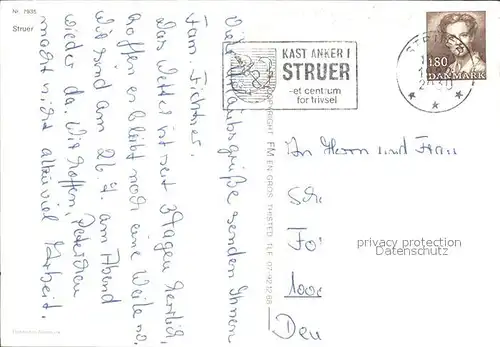 Nr. 7935
Struer
KAST ANKER I
STRUER
-et centrum
for trivsel
180
DANMARK
Viele Urlaubsgrüße senden Ihnen
Fam. Fichtner.
Das Wetter ist seit 3 Tagen herrlich,
hoffen es bleibt noch eine Weile so.
Wir sind am 26.7. am Abend
wieder da. Wir hoffen, Peterchen
macht nicht allzuviel Arbeit.
COPYRIGHT FM EN GROS THISTED TLF. 07-921268
An Herrn und Frau
privacy protection
Datenschutz